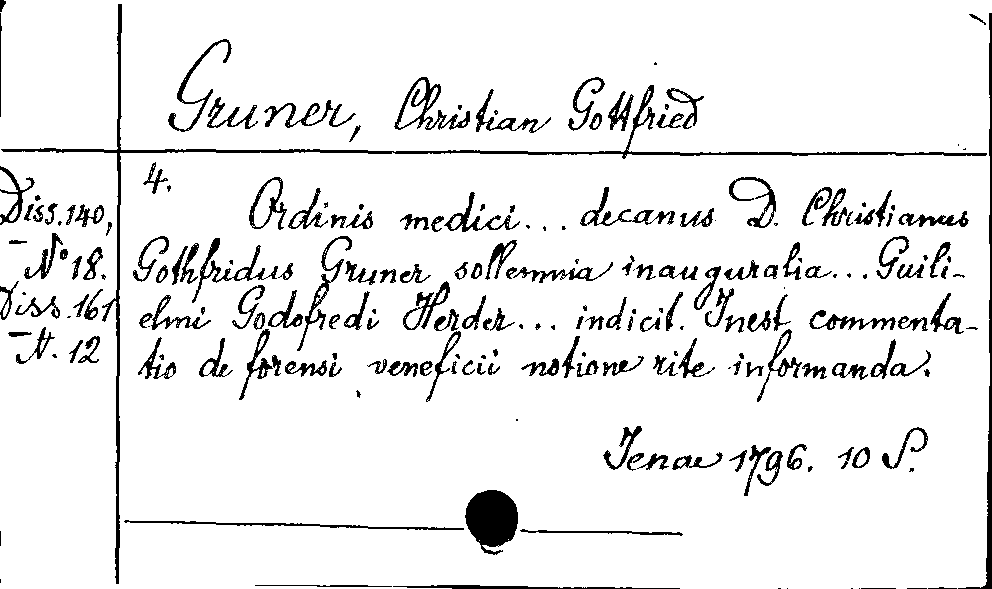 Gruner, Christian Gottfried
4.
Diss. 140,
N° 18.
Diss. 161
N. 12
Ordinis medici... decanus D. Christianus
Gothfridus Gruner sollemnia inauguralia... Guili-
elmi Godofredi Herder... indicit. Inest commenta-
tio de forensi veneficii notione rite informanda.
Jenae 1796. 10 S.